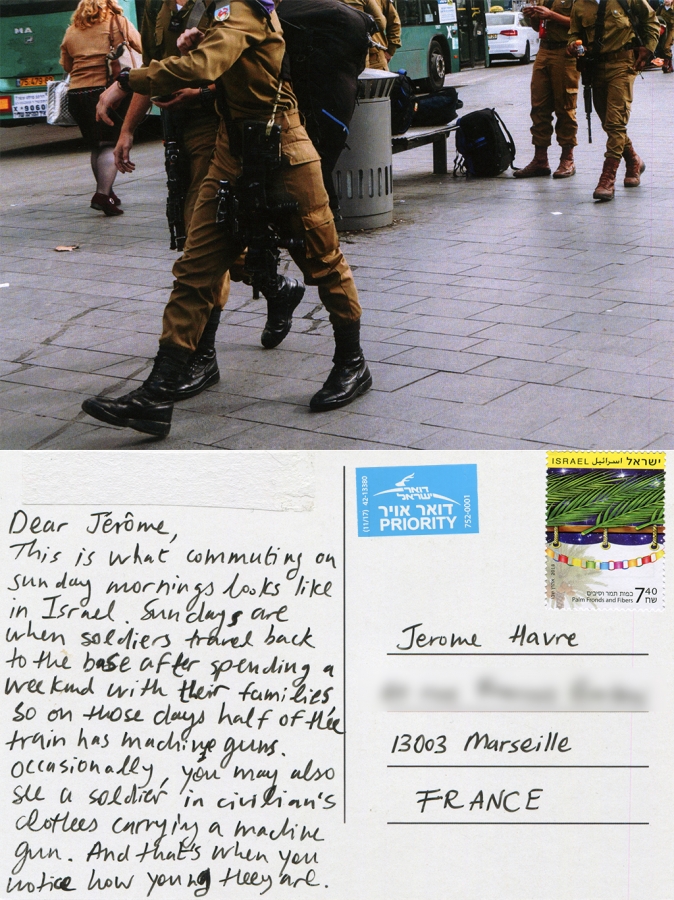 Dear Jérôme,
This is what commuting on
sunday mornings looks like
in Israel. Sundays are
when soldiers travel back
to the base after spending a
weekend with their families,
so on those days half of thee
train has machine guns.
occasionally, you may also
see a soldier in civilian's
clothes carrying a machine
gun. And that's when you
notice how young they are.
(11/17) 42-13380
דואר
ישראל
דואר אויר
PRIORITY
752-0001
ISRAEL اسرائيل ישראל
כפות תמר וסיבים
Palm Fronds and Fibers
7.40
שח
Jerome Havre
13003 Marseille
FRANCE